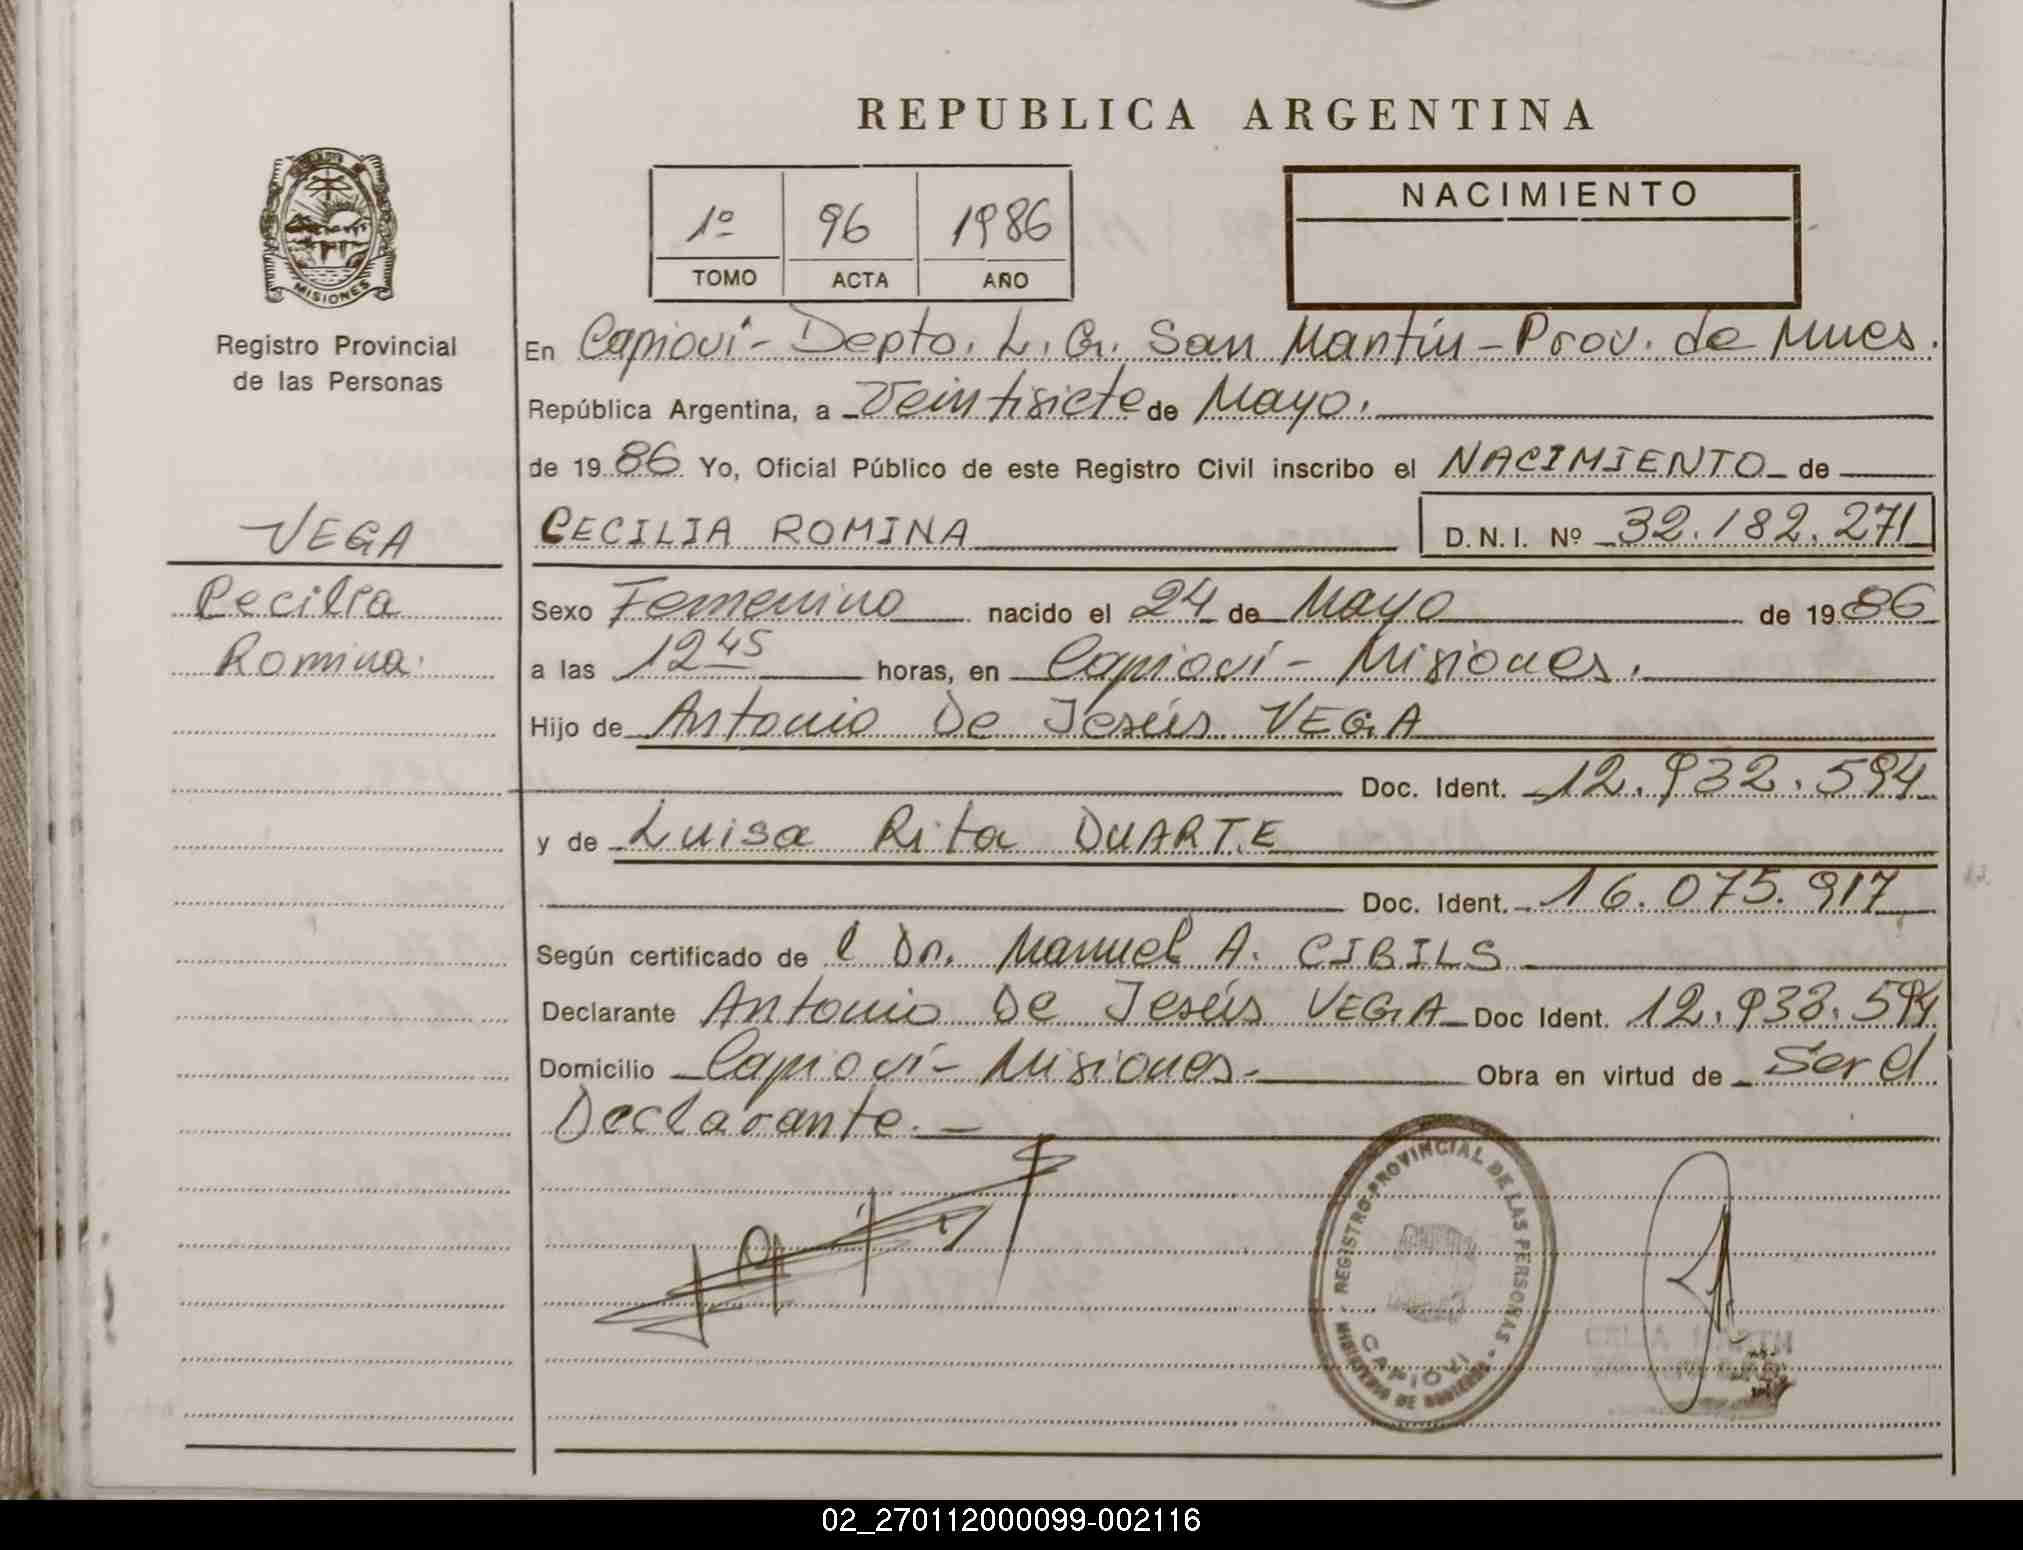 REPUBLICA ARGENTINA
1º 96 1986
TOMO ACTA AÑO
NACIMIENTO
MISIONES
Registro Provincial
de las Personas
En Capioví - Depto. L. G. San Martín - Prov. de Mnes.
República Argentina, a Veintisiete de Mayo.
de 19 86 Yo, Oficial Público de este Registro Civil inscribo el NACIMIENTO de
VEGA
Cecilia
Romina.
CECILIA ROMINA D.N.I. Nº 32.182.271
Sexo Femenino nacido el 24 de Mayo de 19 86
a las 12 45 horas, en Capioví - Misiones.
Hijo de Antonio De Jesús VEGA
Doc. Ident. 12.932.594
y de Luisa Rita DUARTE
Doc. Ident. 16.075.917
Según certificado de l Dr. Manuel A. CIBILS
Declarante Antonio De Jesús VEGA Doc Ident. 12.933.594
Domicilio Capioví - Misiones. Obra en virtud de Ser el
Declarante.
REGISTRO PROVINCIAL DE LAS PERSONAS
CAPIOVI
02_270112000099-002116